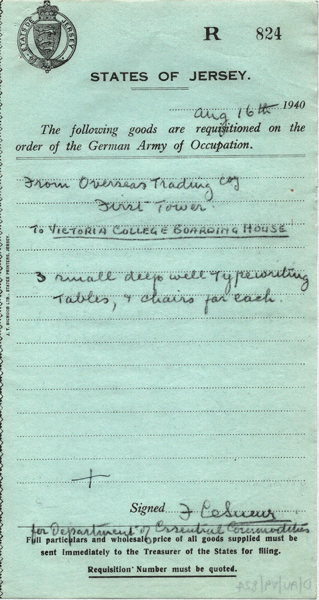 ETATS DE JERSEY
R 824
STATES OF JERSEY.
Aug 16th 1940
The following goods are requisitioned on the
order of the German Army of Occupation.
From Overseas Trading Coy
First Tower.
To VICTORIA COLLEGE BOARDING HOUSE
3 small deep well Typewriting
Tables, & chairs for each.
Signed F LeSueur
for Department of Essential Commodities
Full particulars and wholesale price of all goods supplied must be
sent immediately to the Treasurer of the States for filing.
Requisition Number must be quoted.